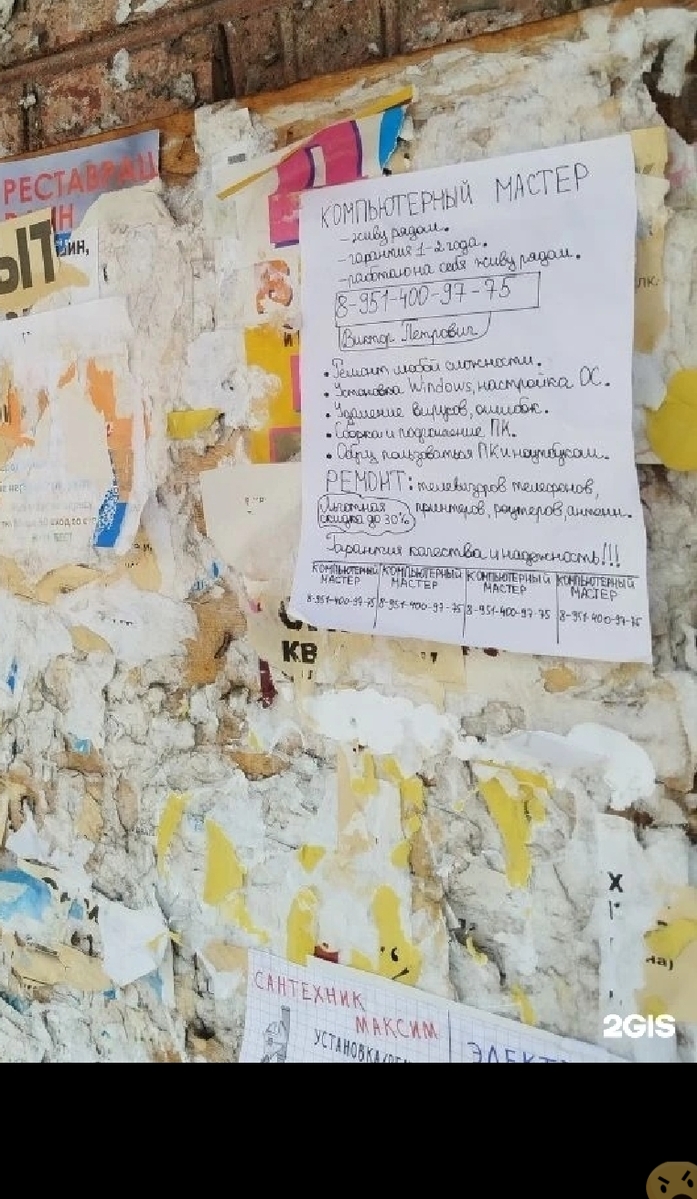 РЕСТАВРАЦ
ЫТ
КОМПЬЮТЕРНЫЙ МАСТЕР
-живу рядом.
-гарантия 1-2 года.
-работаю на себя живу рядом.
8-951-400-97-75
Виктор Петрович
• Ремонт любой сложности.
• Установка Windows, настройка ОС.
• Удаление вирусов, ошибок.
• Сборка и подключение ПК.
• Обучу пользоваться ПК и ноутбуком.
РЕМОНТ: телевизоров телефонов,
Льготная принтеров, роутеров, антенн.
скидка до 30%
Гарантия качества и надежность!!!
КОМПЬЮТЕРНЫЙ КОМПЬЮТЕРНЫЙ КОМПЬЮТЕРНЫЙ КОМПЬЮТЕРНЫЙ
МАСТЕР МАСТЕР МАСТЕР МАСТЕР
8-951-400-97-75 8-951-400-97-75 8-951-400-97-75 8-951-400-97-75
КВ
Х
на)
2GIS
САНТЕХНИК
МАКСИМ
УСТАНОВКА
ЭЛЕКТ